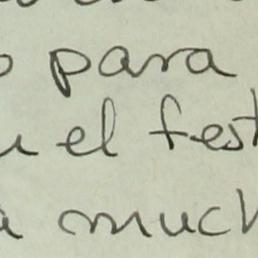 para
el fest
much